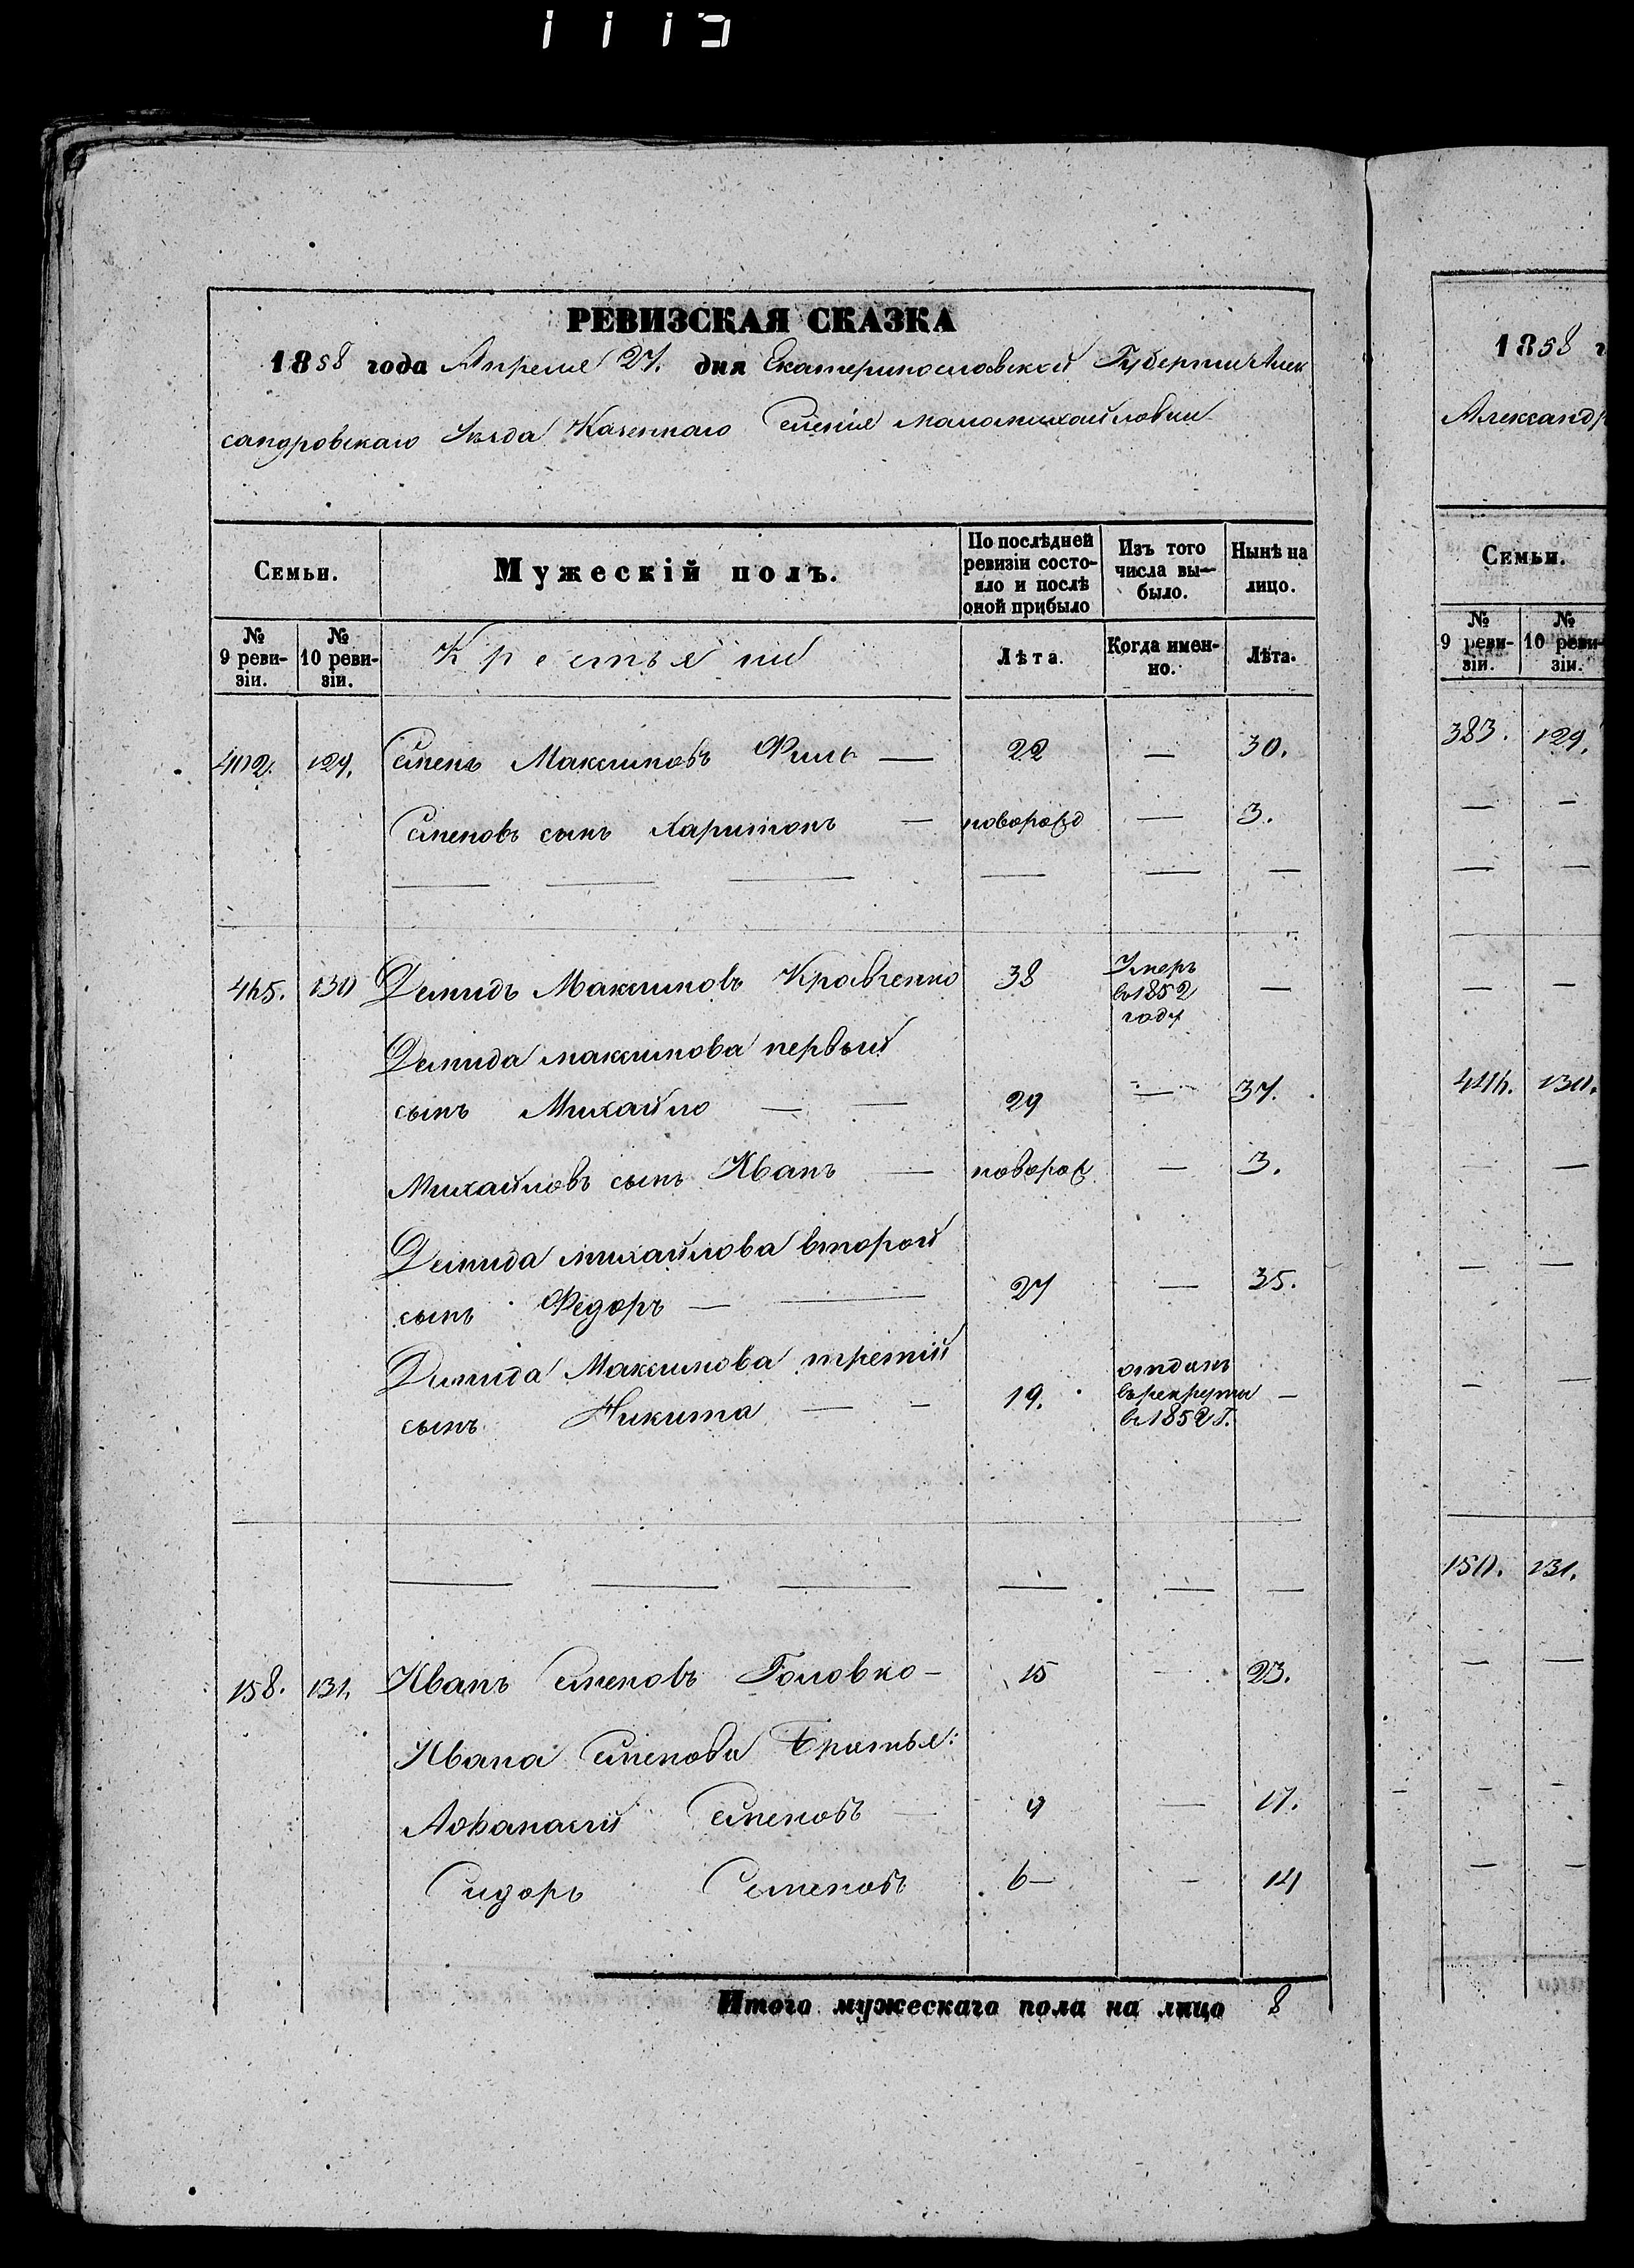 1113
РЕВИЗСКАЯ СКАЗКА
1858 года Апреля 27. дня Екатеринославской Губернии Алек
сандровскаго Уезда Казеннаго Селенія Маломихайловки
Семьи. Мужескій полъ. По послѣдней ревизіи состояло и послѣ оной прибыло Изъ того числа выбыло. Нынѣ на лицо.
№ 9 ревизіи. № 10 ревизіи. Крестьяни Лѣта. Когда именно. Лѣта.
402. 129. Семенъ Максимовъ Филь — 22 — 30.
Семеновъ сынъ Харитонъ — новорожд — 3.
465. 130 Демидъ Максимовъ Кравченко 38 Умеръ —
в 1852
году
Демида максимова первый
сынъ Михайло — — 29 — 37.
Михайловъ сынъ Иванъ — новорож — 3.
Демида михайлова второй
сынъ Федоръ — — 27 — 35.
Демида Максимова третій отданъ
сынъ Никита — — 19. в рекруты —
в 1852 г.
158. 131. Иванъ Семеновъ Головко — 15 — 23.
Ивана Семенова Братья:
Афанасий Семеновъ — 9 — 17.
Сидоръ Семеновъ 6 — — 14
Итого мужескаго пола на лицо 8
1858 г
Александр
Семьи.
№ 9 ревизіи. № 10 ревизіи.
383. 129.
446. 130.
150. 131.